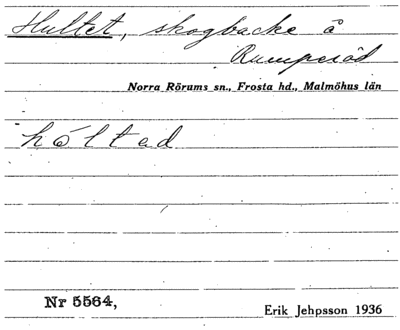 Hultet, skogbacke å
Rumperöd
Norra Rörums sn., Frosta hd., Malmöhus län
hóltad
Nr 5564,
Erik Jehpsson 1936